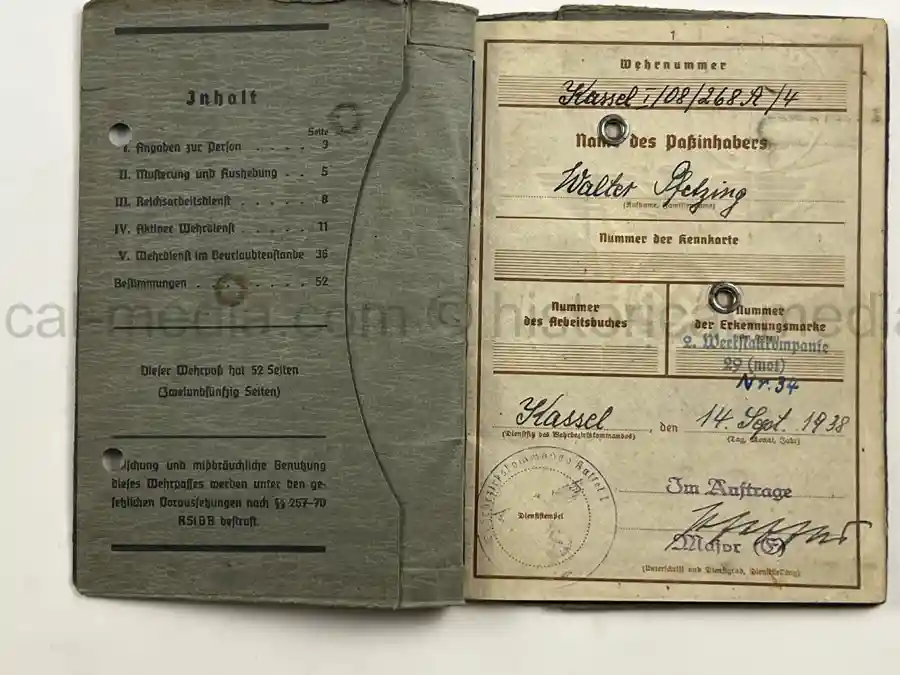 Inhalt
Seite
I. Angaben zur Person . . . . . 3
II. Musterung und Aushebung . . 5
III. Reichsarbeitsdienst . . . . . 8
IV. Aktiver Wehrdienst . . . . . 11
V. Wehrdienst im Beurlaubtenstande 36
Bestimmungen . . . . . . . . 52
Dieser Wehrpaß hat 52 Seiten
(Zweiundfünfzig Seiten)
schung und mißbräuchliche Benutzung
dieses Wehrpasses werden unter den ge-
setzlichen Voraussetzungen nach §§ 267-70
RStGB bestraft.
1
Wehrnummer
Kassel I/08/268 A/4
Name des Paßinhabers
Walter Pfetzing
(Rufname, Familienname)
Nummer der Kennkarte
Nummer
des Arbeitsbuches
Nummer
der Erkennungsmarke
2. Werkstattkompanie
29 (mot)
Nr. 34
Kassel, den 14. Sept. 1938
(Dienstsitz des Wehrbezirkskommandos) (Tag, Monat, Jahr)
Wehrbezirkskommando Kassel I
Dienststempel
Im Auftrage
Major (E)
(Unterschrift und Dienstgrad, Dienststellung)
cal-media.com © historical-media